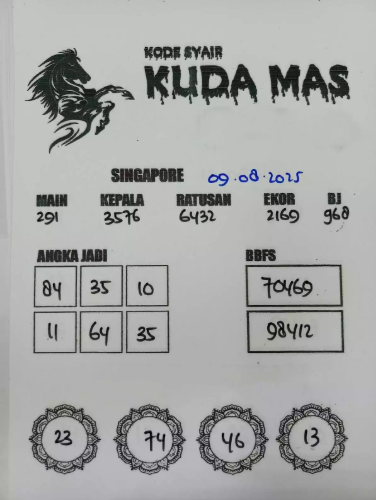 KODE SYAIR
KUDA MAS
SINGAPORE 09.08.2025
MAIN KEPALA RATUSAN EKOR BJ
291 3576 6432 2169 968
ANGKA JADI BBFS
84 35 10 70469
11 64 35 98412
23 74 46 13